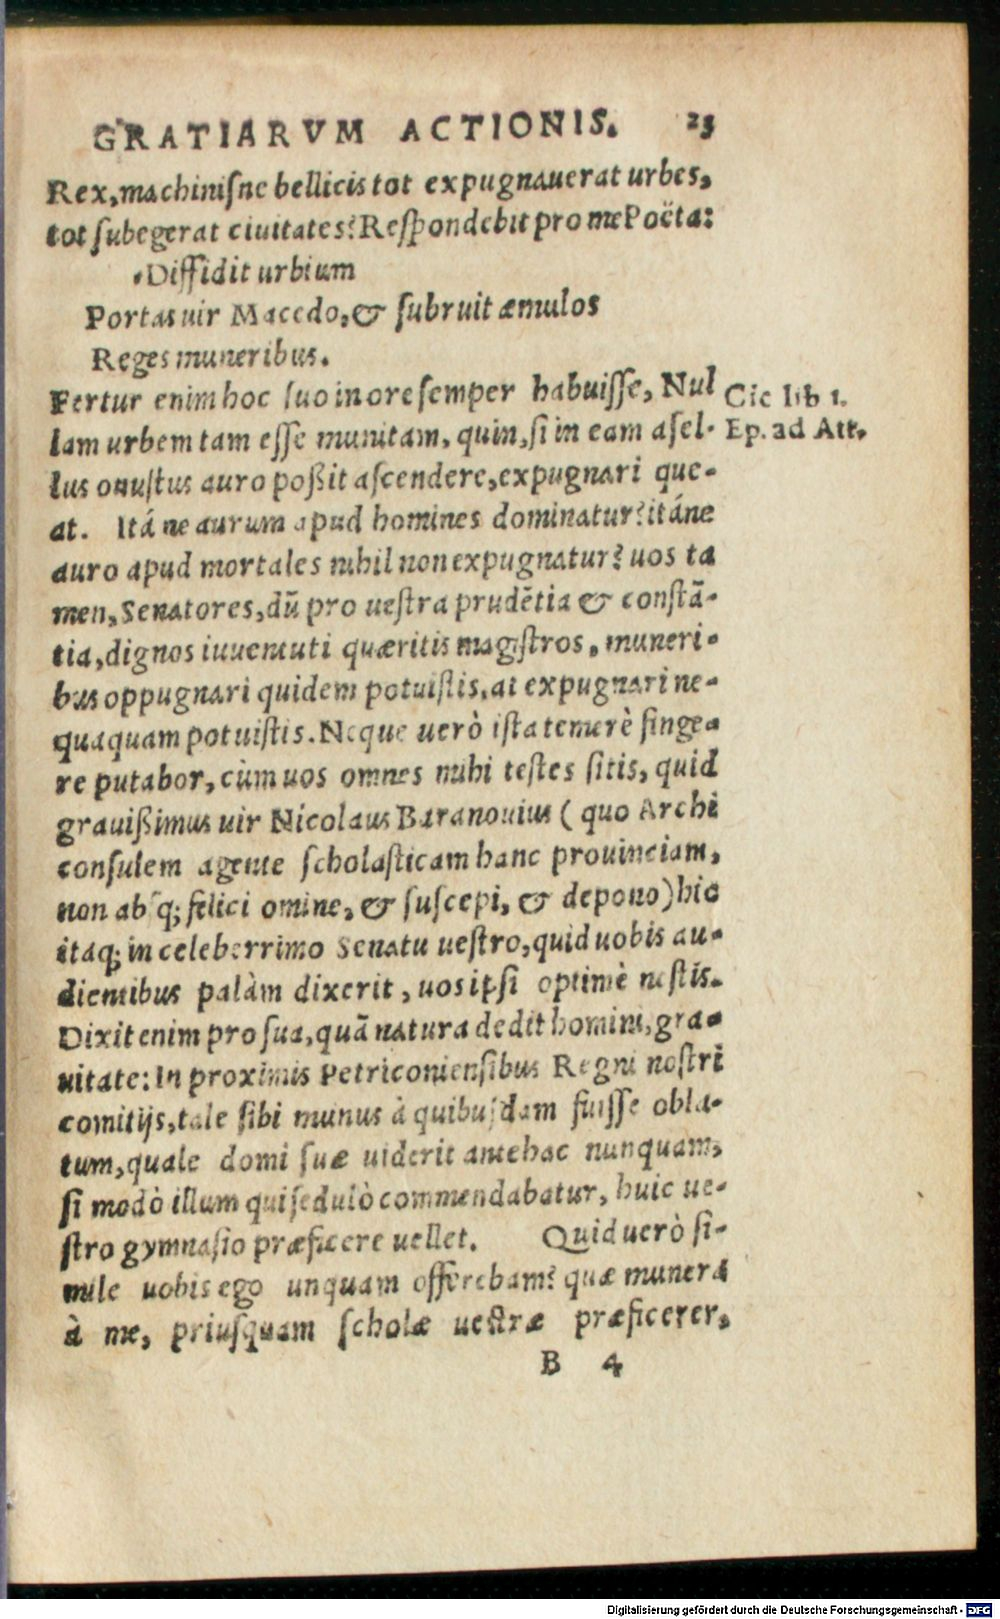 GRATIARVM ACTIONIS. 23
Rex, machinisne bellicis tot expugnauerat urbes,
tot subegerat ciuitates? Respondebit pro me Poëta:
Diffidit urbium
Portas uir Macedo, & subruit æmulos
Reges muneribus.
Fertur enim hoc suo in ore semper habuisse, Nul
lam urbem tam esse munitam, quin, si in eam asel-
lus onustus auro poßit ascendere, expugnari que-
at. Itá ne aurum apud homines dominatur? itáne
auro apud mortales nihil non expugnatur? uos ta
men, Senatores, dũ pro uestra prudẽtia & constã-
tia, dignos iuuentuti quæritis magistros, muneri-
bus oppugnari quidem potuistis, at expugnari ne-
quaquam potuistis. Neque uerò ista temerè finge-
re putabor, cùm uos omnes mihi testes sitis, quid
grauißimus uir Nicolaus Baranouius ( quo Archi
consulem agente scholasticam hanc prouinciam,
non absq; felici omine, & suscepi, & depono) hic
itaq; in celeberrimo Senatu uestro, quid uobis au-
dientibus palàm dixerit, uos ipsi optimè nostis.
Dixit enim pro sua, quã natura dedit homini, gra-
uitate: In proximis Petriconiensibus Regni nostri
comitijs, tale sibi munus à quibusdam fuisse obla-
tum, quale domi suæ uiderit antehac nunquam,
si modò illum qui sedulò commendabatur, huic ue-
stro gymnasio præficere uellet. Quid uerò si-
mile uobis ego unquam offerebam? quæ munera
à me, priusquam scholæ uestræ præficerer,
B 4
Cic lib 1.
Ep. ad Att.
Digitalisierung gefördert durch die Deutsche Forschungsgemeinschaft - DFG